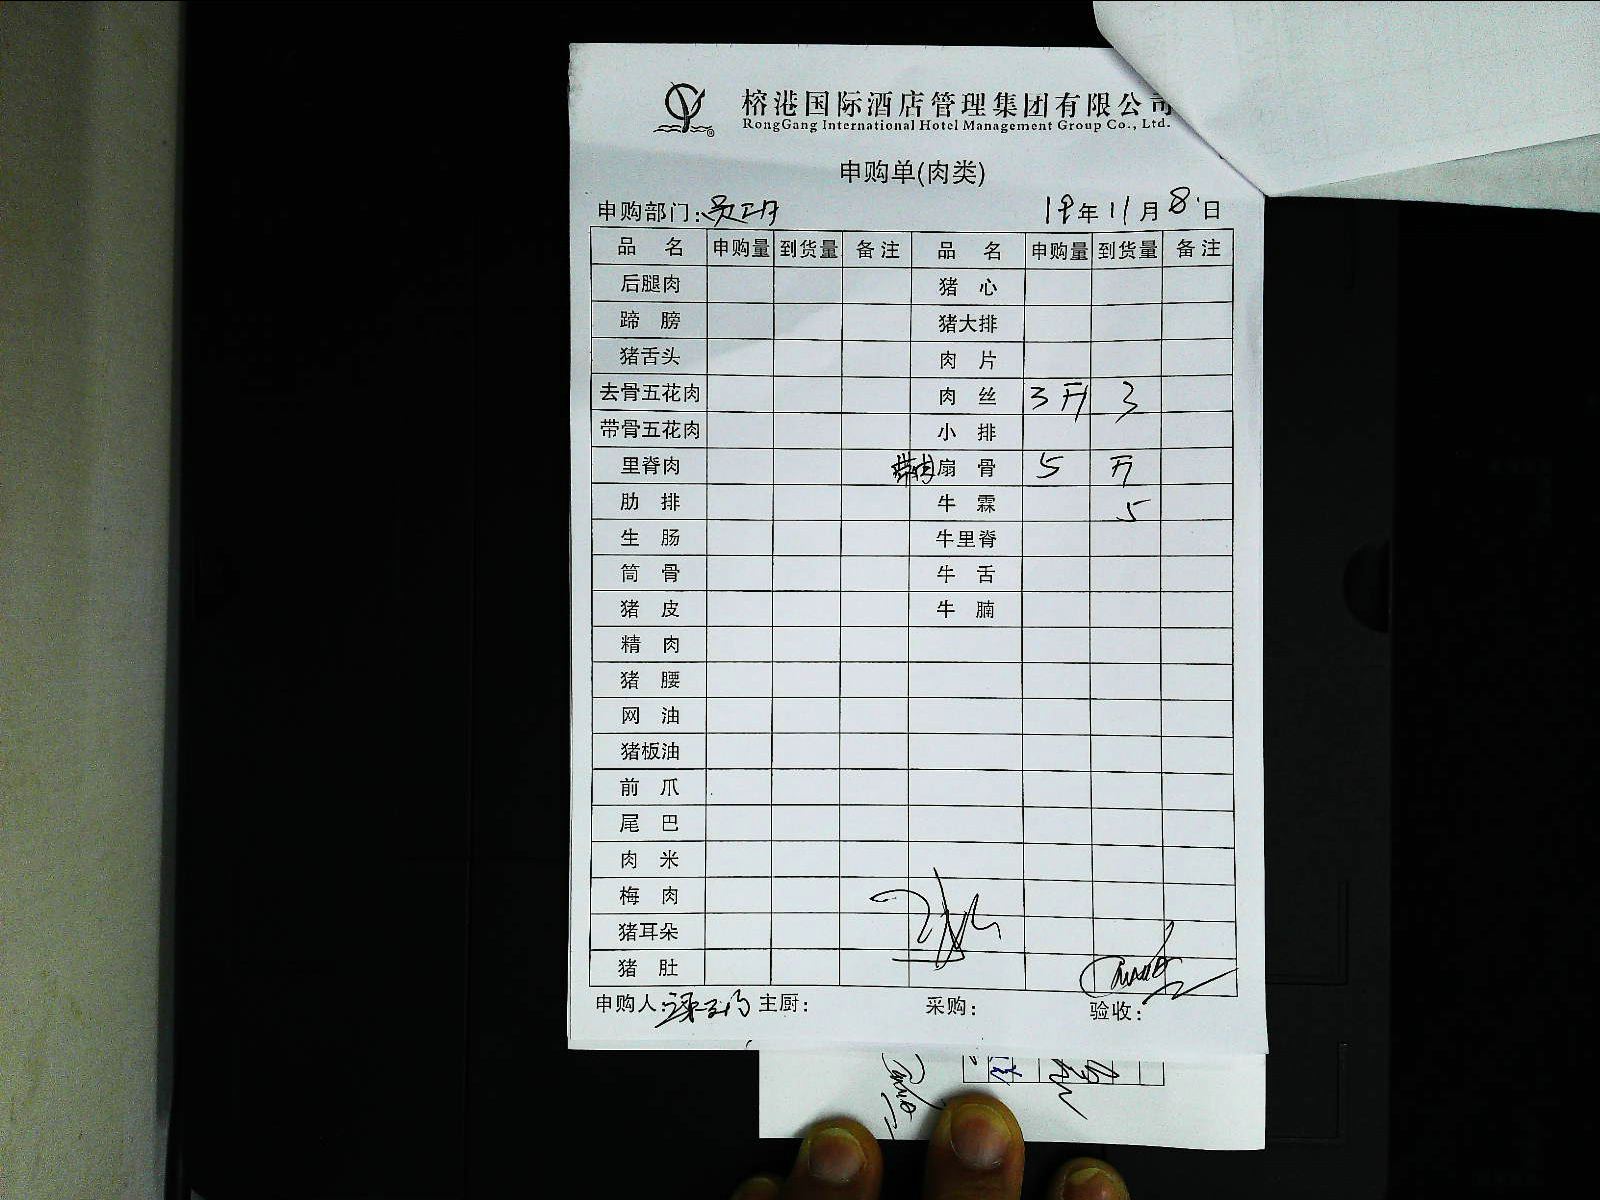 榕港国际酒店管理集团有限公司
RongGang International Hotel Management Group Co., Ltd.
申购单(肉类)
申购部门: 19年11月8日
品名 申购量 到货量 备注 品名 申购量 到货量 备注
后腿肉 猪心
蹄膀 猪大排
猪舌头 肉片
去骨五花肉 肉丝 3斤 3
带骨五花肉 小排
里脊肉 带肉扇骨 5 斤
肋排 牛霖 5
生肠 牛里脊
筒骨 牛舌
猪皮 牛腩
精肉
猪腰
网油
猪板油
前爪
尾巴
肉米
梅肉
猪耳朵
猪肚
申购人: 主厨: 采购: 验收: